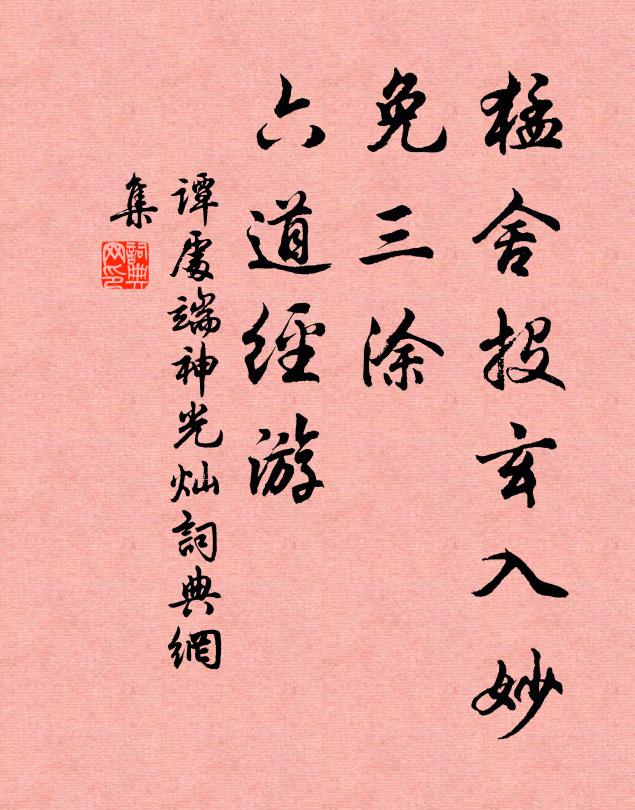 猛舍投玄入妙
免三涂
六道經游
谭處端神光灿詞典網
集
詞典
网印